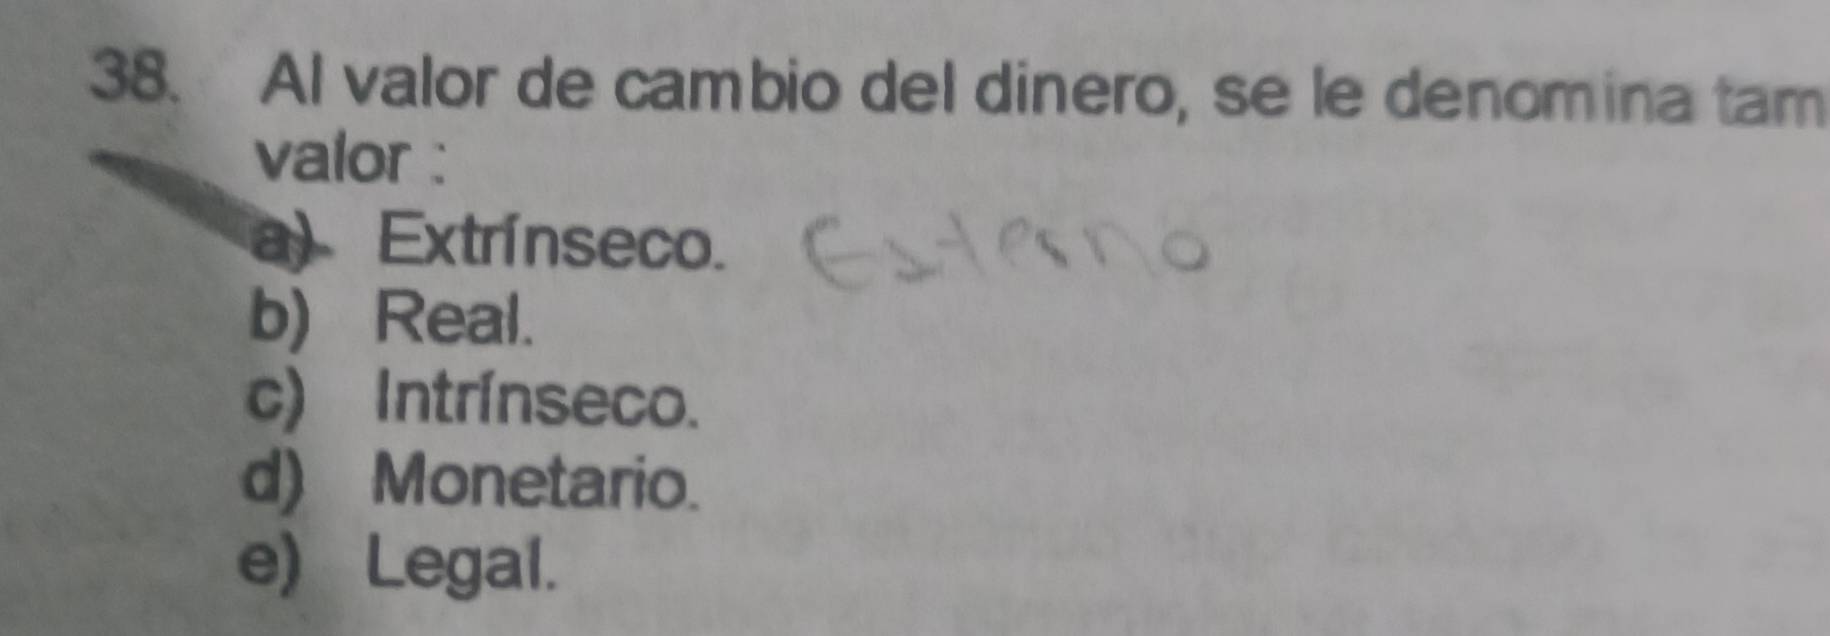 38. Al valor de cambio del dinero, se le denomina tam
valor :
a) Extrínseco. Externo
b) Real.
c) Intrínseco.
d) Monetario.
e) Legal.